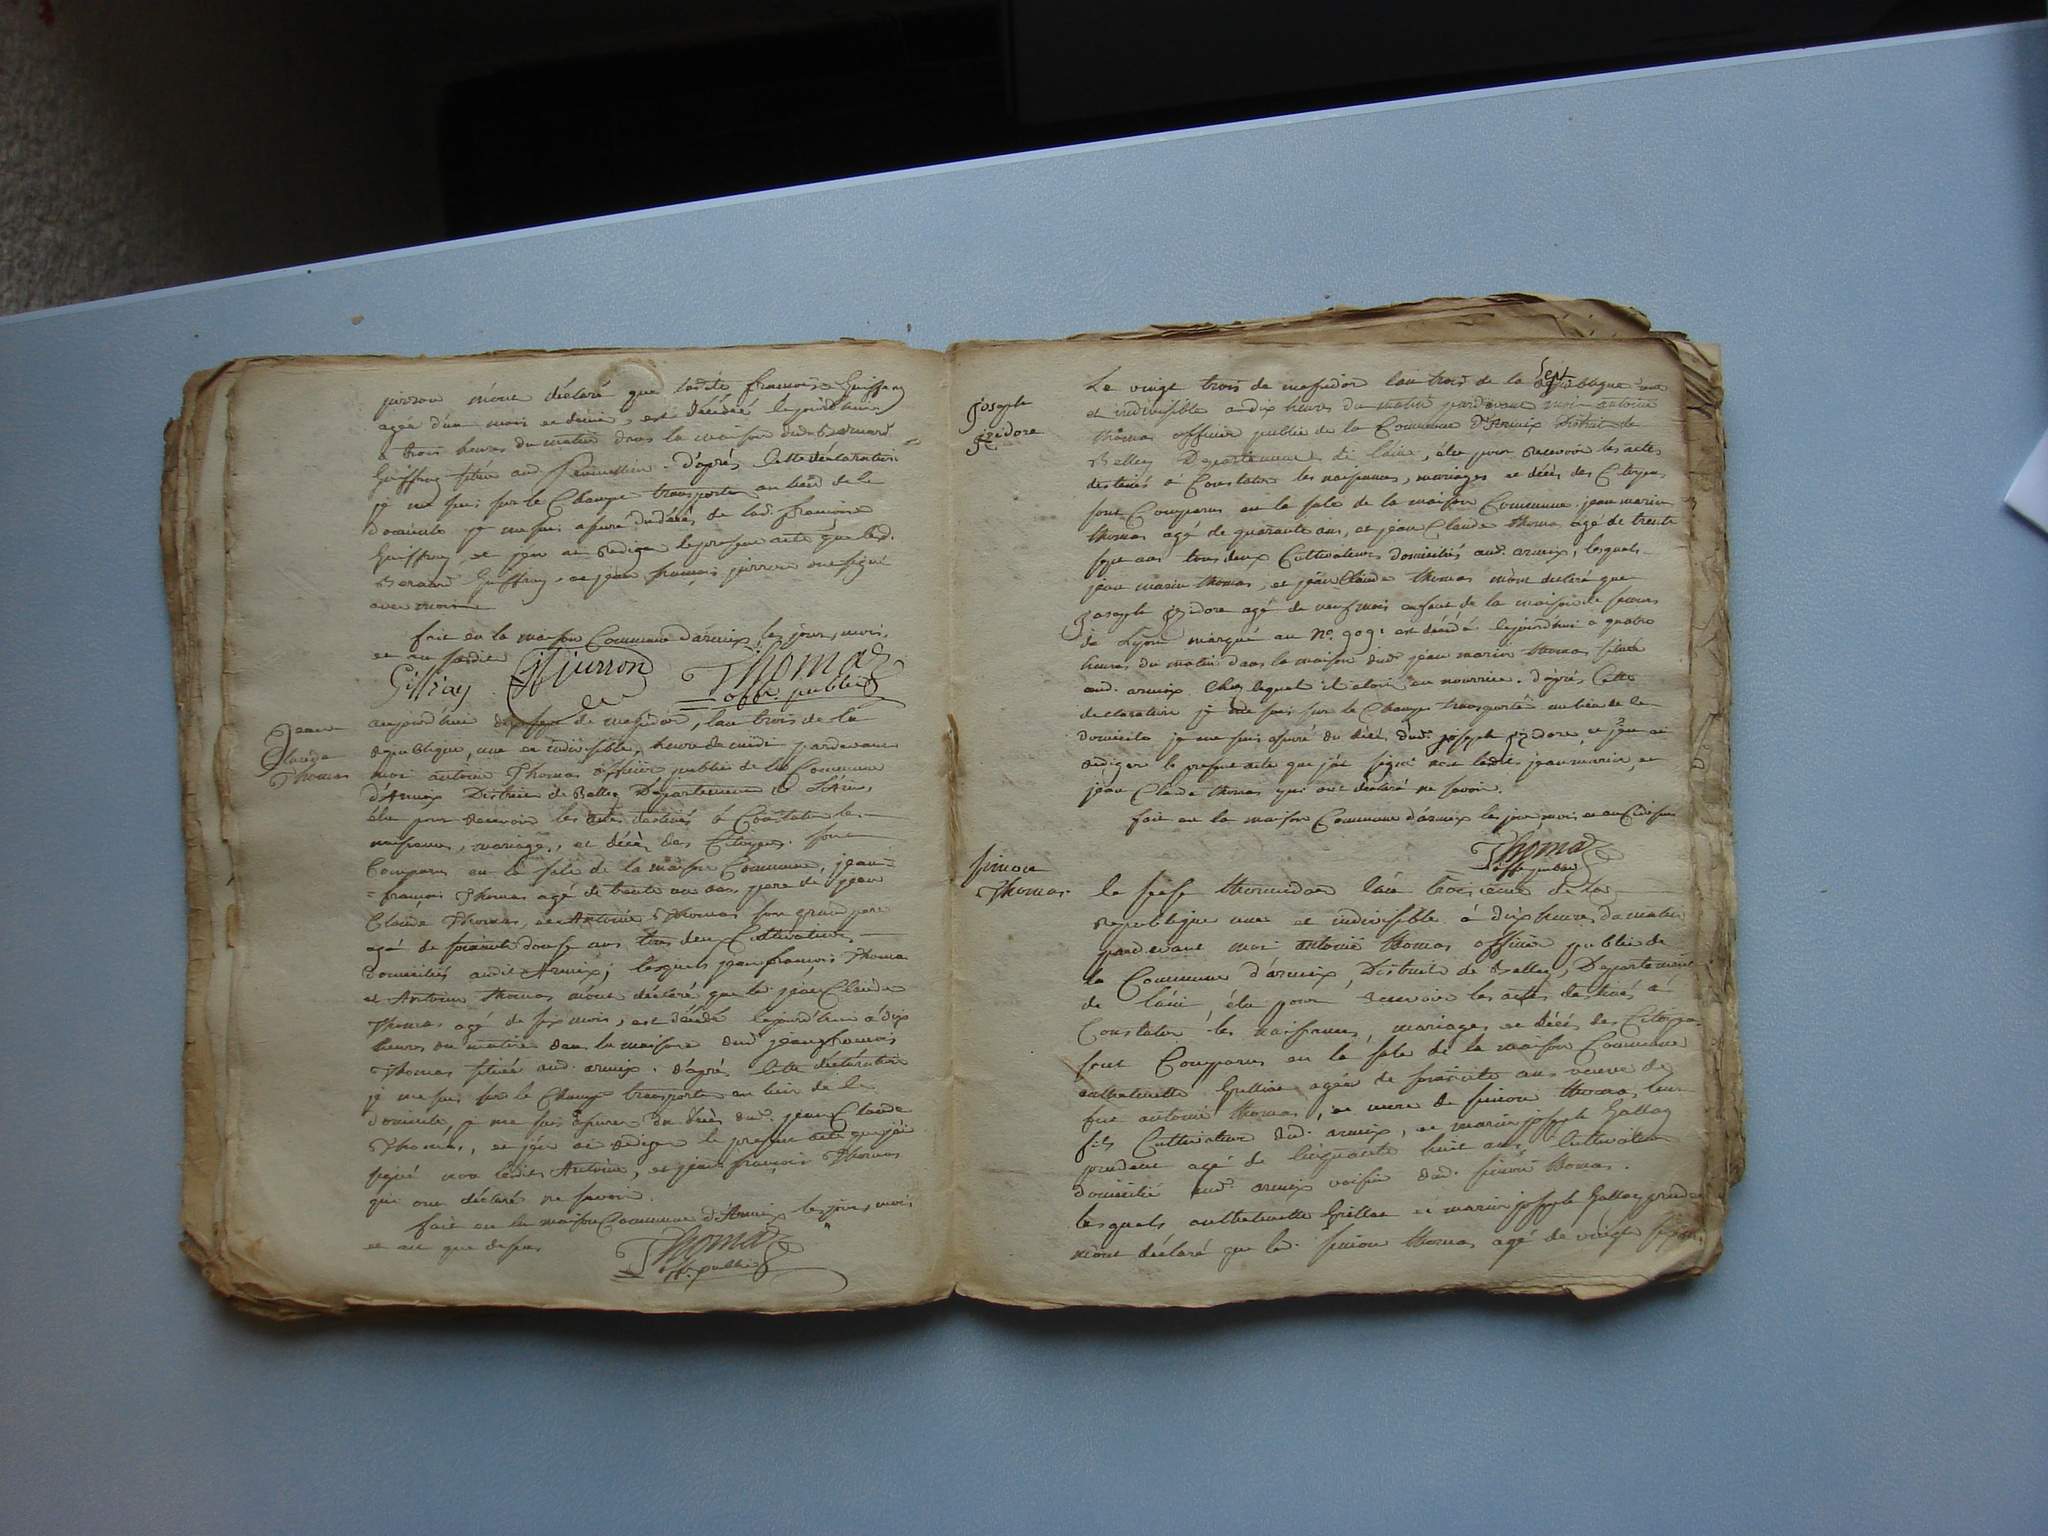 jurron m'ont déclaré que ladite francoise Guiffray
agée d'un mois et demie, est décédée lejourd'huis
a trois heures du matin dans la maison dud. Bernard
Guiffray située aud. d'aprés cette déclaration
je me suis sur le Champs transporté au lieu de le
domicile je me suis assuré dudécés de lad. francoise
Guiffray, et j'en ai rediger le present acte que led.
Bernard Guiffray, et jean francois jurron ont signé
avec moi
fait en la maison Commune d'armix les jour, mois,
et an susdit
Giffray jurron Thomas
offr. public
Jean
Claude
Thomas
aujourd'hui de messidor, lan trois de la
Republique, une et indivisible, heure de midi pardevant
moi antoine Thomas officier public de la Commune
d'Armix District de Belley Departement de L'Ain,
élu pour Recevoir les actes destinés à Constater les
naissances, mariages, et décés des Citoyens. sont
Comparus en la sale de la maison Commune, jean
francois Thomas agé de trente un ans, pere de jean
Claude Thomas, et Antoine Thomas son grand pere
agé de soixante douse ans tous deux Cultivateurs,
domiciliés audit Armix; lesquels jean francois Thomas
et Antoine thomas m'ont déclaré que led. jean Claude
Thomas agé de six mois, est décédé lejourd'hui à dix
heures du matin dans la maison dud. jean francois
Thomas située aud. armix. d'aprés cette déclaration
je me suis sur le Champs transporté au lieu de le
domicile, je me suis assurer du décés dud. jean Claude
Thomas, et j'en ai rediger le present acte que j'ai
signé non lesdits Antoine, et jean francois Thomas
qui ont déclaré ne savoir.
fait en la maison Commune d'Armix les jour, mois
et an que dessus
Thomas
offr. public
joseph
jzidore
Le vingt trois de messidor lan trois de la Republique une
et indivisible a dix heures du matin pardevant moi antoine
thomas officier public de la Commune d'Armix District de
Belley Departement de lain, élu pour Recevoir les actes
destinés a Constater les naissances, mariages et décés des Citoyens
sont Comparus en la sale de la maison Commune. jean marin
thomas agé de quarante ans, et jean Claude thomas agé de trente
sept ans tous deux Cultivateurs domiciliés aud. armix, lesquels
jean marin thomas, et jean Claude thomas m'ont declaré que
joseph jzidore agé de neuf mois enfant de la maison de secours
de Lyon marqué au N°. 909. est décédé lejourdhui a quatre
heures du matin dans la maison dud. jean marin thomas située
aud. armix. Chez lequel il etoit en nourrice. d'aprés Cette
declaration je me suis sur le Champs transporté au lieu de le
domicile je me suis assuré du décés dud. joseph jzidore, et j'en ai
rediger le present acte que j'ai signé non lesdits jean marin, et
jean Claude thomas qui ont declaré ne savoir.
fait en la maison Commune d'armix les jour, mois et an Cidessus
Thomas
offr. public
simon
Thomas.
le seise thermidor lan troisieme de la
republique une et indivisible à dix heures du matin
pardevant moi antoine thomas officier public de
la Commune d'armix, District de Belley, Departement
de lain élu pour recevoir les actes destinés à
Constater les naissances, mariages et décés des Citoyens
sont Comparus en la sale de la maison Commune
anthoinette agée de soixante ans veuve de
feu antoine thomas, et mere de simon thomas, leur
fils Cultivateur dud. armix, et marin joseph Gallay
prudent agé de Cinquante huit ans Cultivateur
domicilié aud. armix voisin dud. simon thomas.
lesquels anthoinette et marin joseph Gallay prudent
m'ont déclaré que led. simon thomas agé de vingt